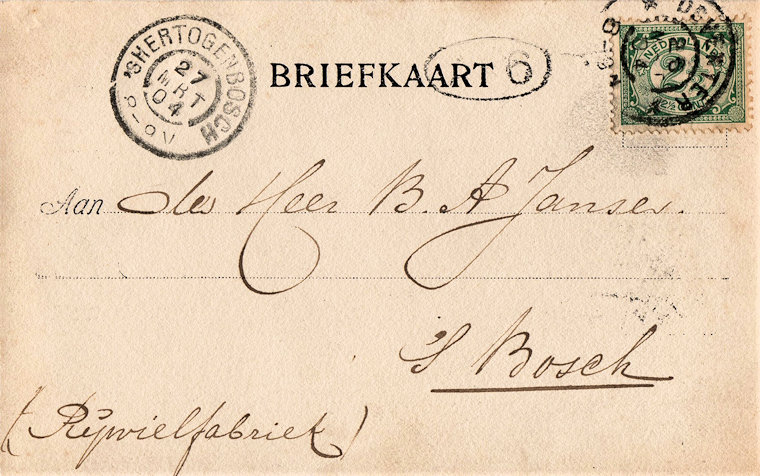 'SHERTOGENBOSCH
27
MRT
04
8-9V
BRIEFKAART
6
DEVENTER
NEDERLAND
2½
Aan den Heer B. A. Jansen.
'S Bosch
(Rijwielfabriek)